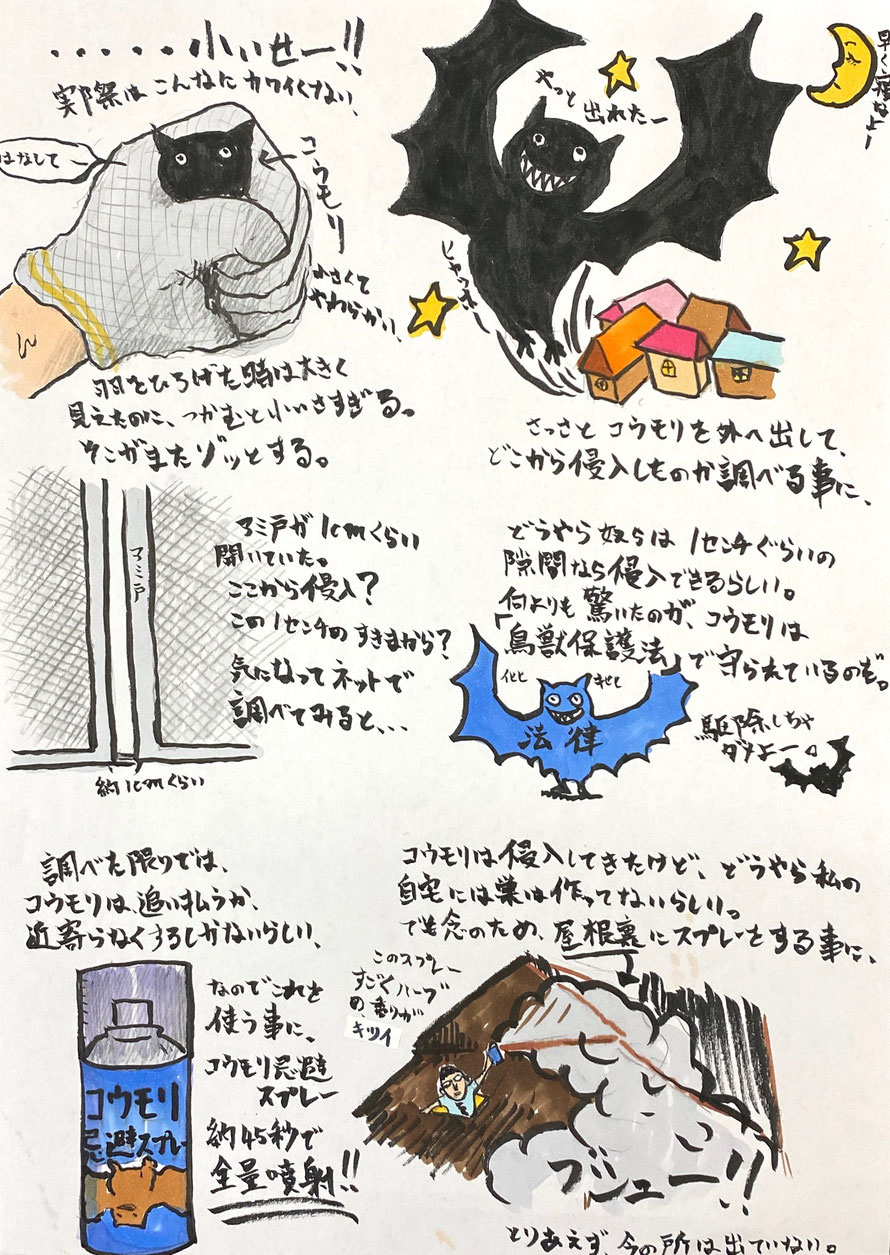 ・・・・・小いせー!!
実際はこんなにカワイくない、
はなしてー
コウモリ
小さくて
やわらかい、
羽をひろげた時は大きく
見えたのに、つかむと小いさすぎる。
そこがまたゾッとする。
やっと出れたー
早く寝なよー
さっさと コウモリを外へ出して、
どこから侵入したものか調べる事に、
アミ戸
約1cmくらい
アミ戸が1cmくらい
開いていた。
ここから侵入?
この1センチのすきまから?
気になってネットで
調べてみると、、、
どうやら奴らは1センチぐらいの
隙間なら侵入できるらしい。
何よりも驚いたのが、コウモリは
「鳥獣保護法」で守られているのだ。
法律
駆除しちゃ
ダメよー
調べた限りでは、
コウモリは、追い払うか、
近寄らなくするしかないらしい、
コウモリ
忌避スプレー
なのでこれを
使う事に、
コウモリ忌避
スプレー
約45秒で
全量噴射!!
コウモリは侵入してきたけど、どうやら私の
自宅には巣は作ってないらしいっ。
でも念のため、屋根裏にスプレーをする事に、
このスプレー
すごくハーブ
の、香りが
キツイ
ブシュー!!
とりあえず、今の所は出ていない。